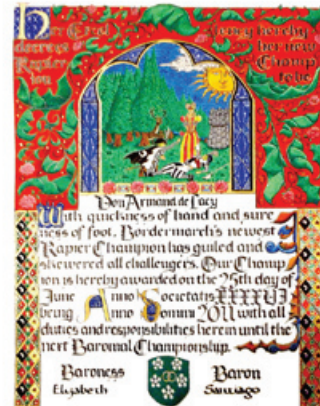 hereby
her new
Rapier
Champ
ion
to be
Don Armand de Lacy
With quickness of hand and sure
ness of foot, Bordermarch's newest
Rapier Champion has guiled and
skewered all challengers. Our Champ
ion is hereby awarded on the 25th day of
June Anno Societatis XXXXVI
being Anno Domini 2011 with all
duties and responsibilities herein until the
next Baronial Championship.
Baroness Baron
Elizabeth Santiago